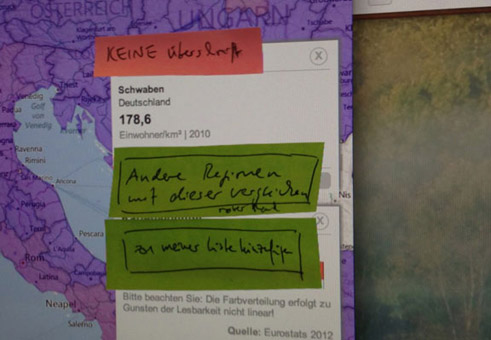 ÖSTERREICH
UNGARN
Klagenfurt am
KEINE Überschrift
Schwaben
Deutschland
178,6
Einwohner/km² | 2010
Triest
Venedig
Golf
von
Venedig
Ravenna
Rimini
Ancona
Perugia
Pescara
L'Aquila
Rom
Latina
Neapel
Salerno
Nis
Andere Regionen
mit dieser vergleichen
zu meiner Liste hinzufügen
Bitte beachten Sie: Die Farbverteilung erfolgt zu
Gunsten der Lesbarkeit nicht linear!
Quelle: Eurostats 2012